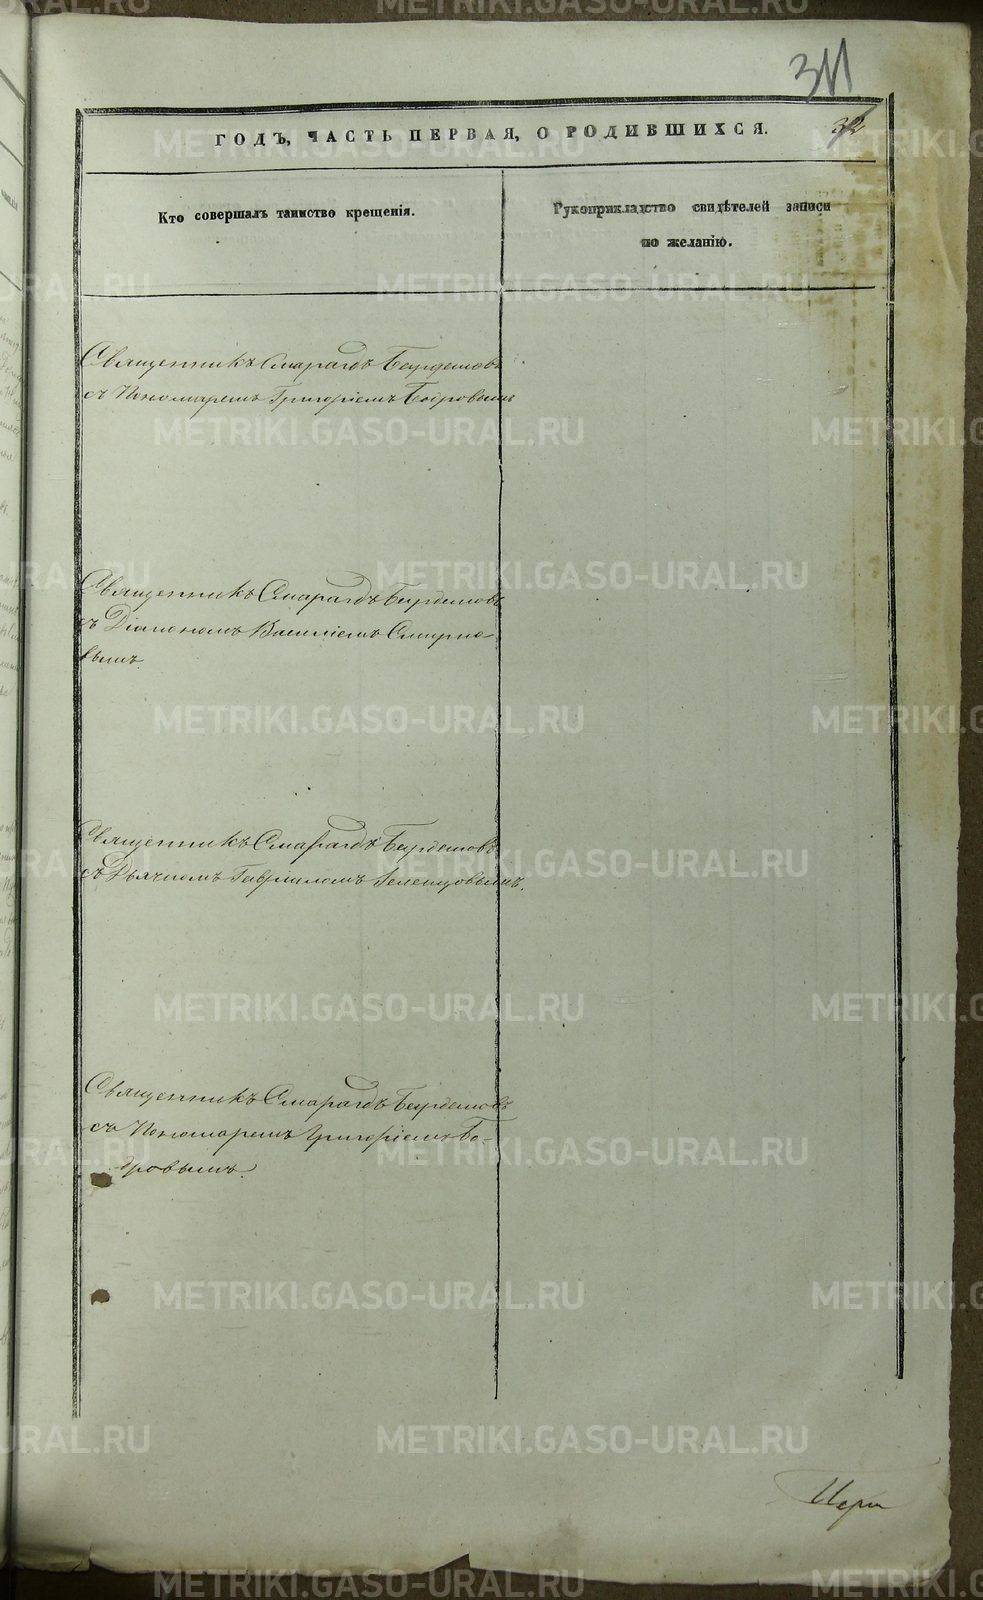 311
32
ГОДЪ, ЧАСТЬ ПЕРВАЯ, О РОДИВШИХСЯ.
Кто совершалъ таинство крещенія.
Рукоприкладство свидѣтелей записи
по желанію.
Священникъ Смарагдъ Бирдемовъ
съ Пономаремъ Григоріемъ Бодровымъ
Священникъ Смарагдъ Бирдемовъ
съ Діакономъ Василіемъ Смирно-
вымъ.
Священникъ Смарагдъ Бирдемовъ
съ Дьячкомъ Гавріиломъ Зеленцовымъ.
Священникъ Смарагдъ Бирдемовъ
съ Пономаремъ Григоріемъ Бо-
дровымъ.
METRIKI.GASO-URAL.RU